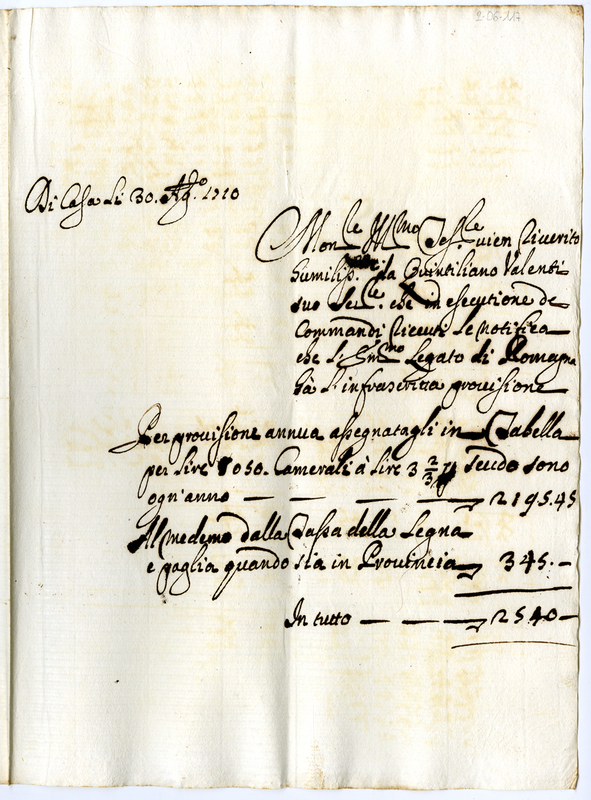 2-06-117
Di Casa Li 30. Ag.to 1710
Mons.le Ill.mo Tes.le vien Riverito
humiliss.te da Quintiliano Valenti
suo Ser.le che in esecutione de
Commandi Riceuti Le Notifica
che l'Em.mo Legato di Romagna
hà l'infrascritta provisione
Per provisione annua assegnatagli in Tabella
per lire 8050. Camerali à lire 3 2/3 scudo sono
ogn'anno — — — — 2195.45
Al Medemo dalla Tassa della Legna
e paglia quando stà in Provincia 345.—
In tutto — — — 2540—